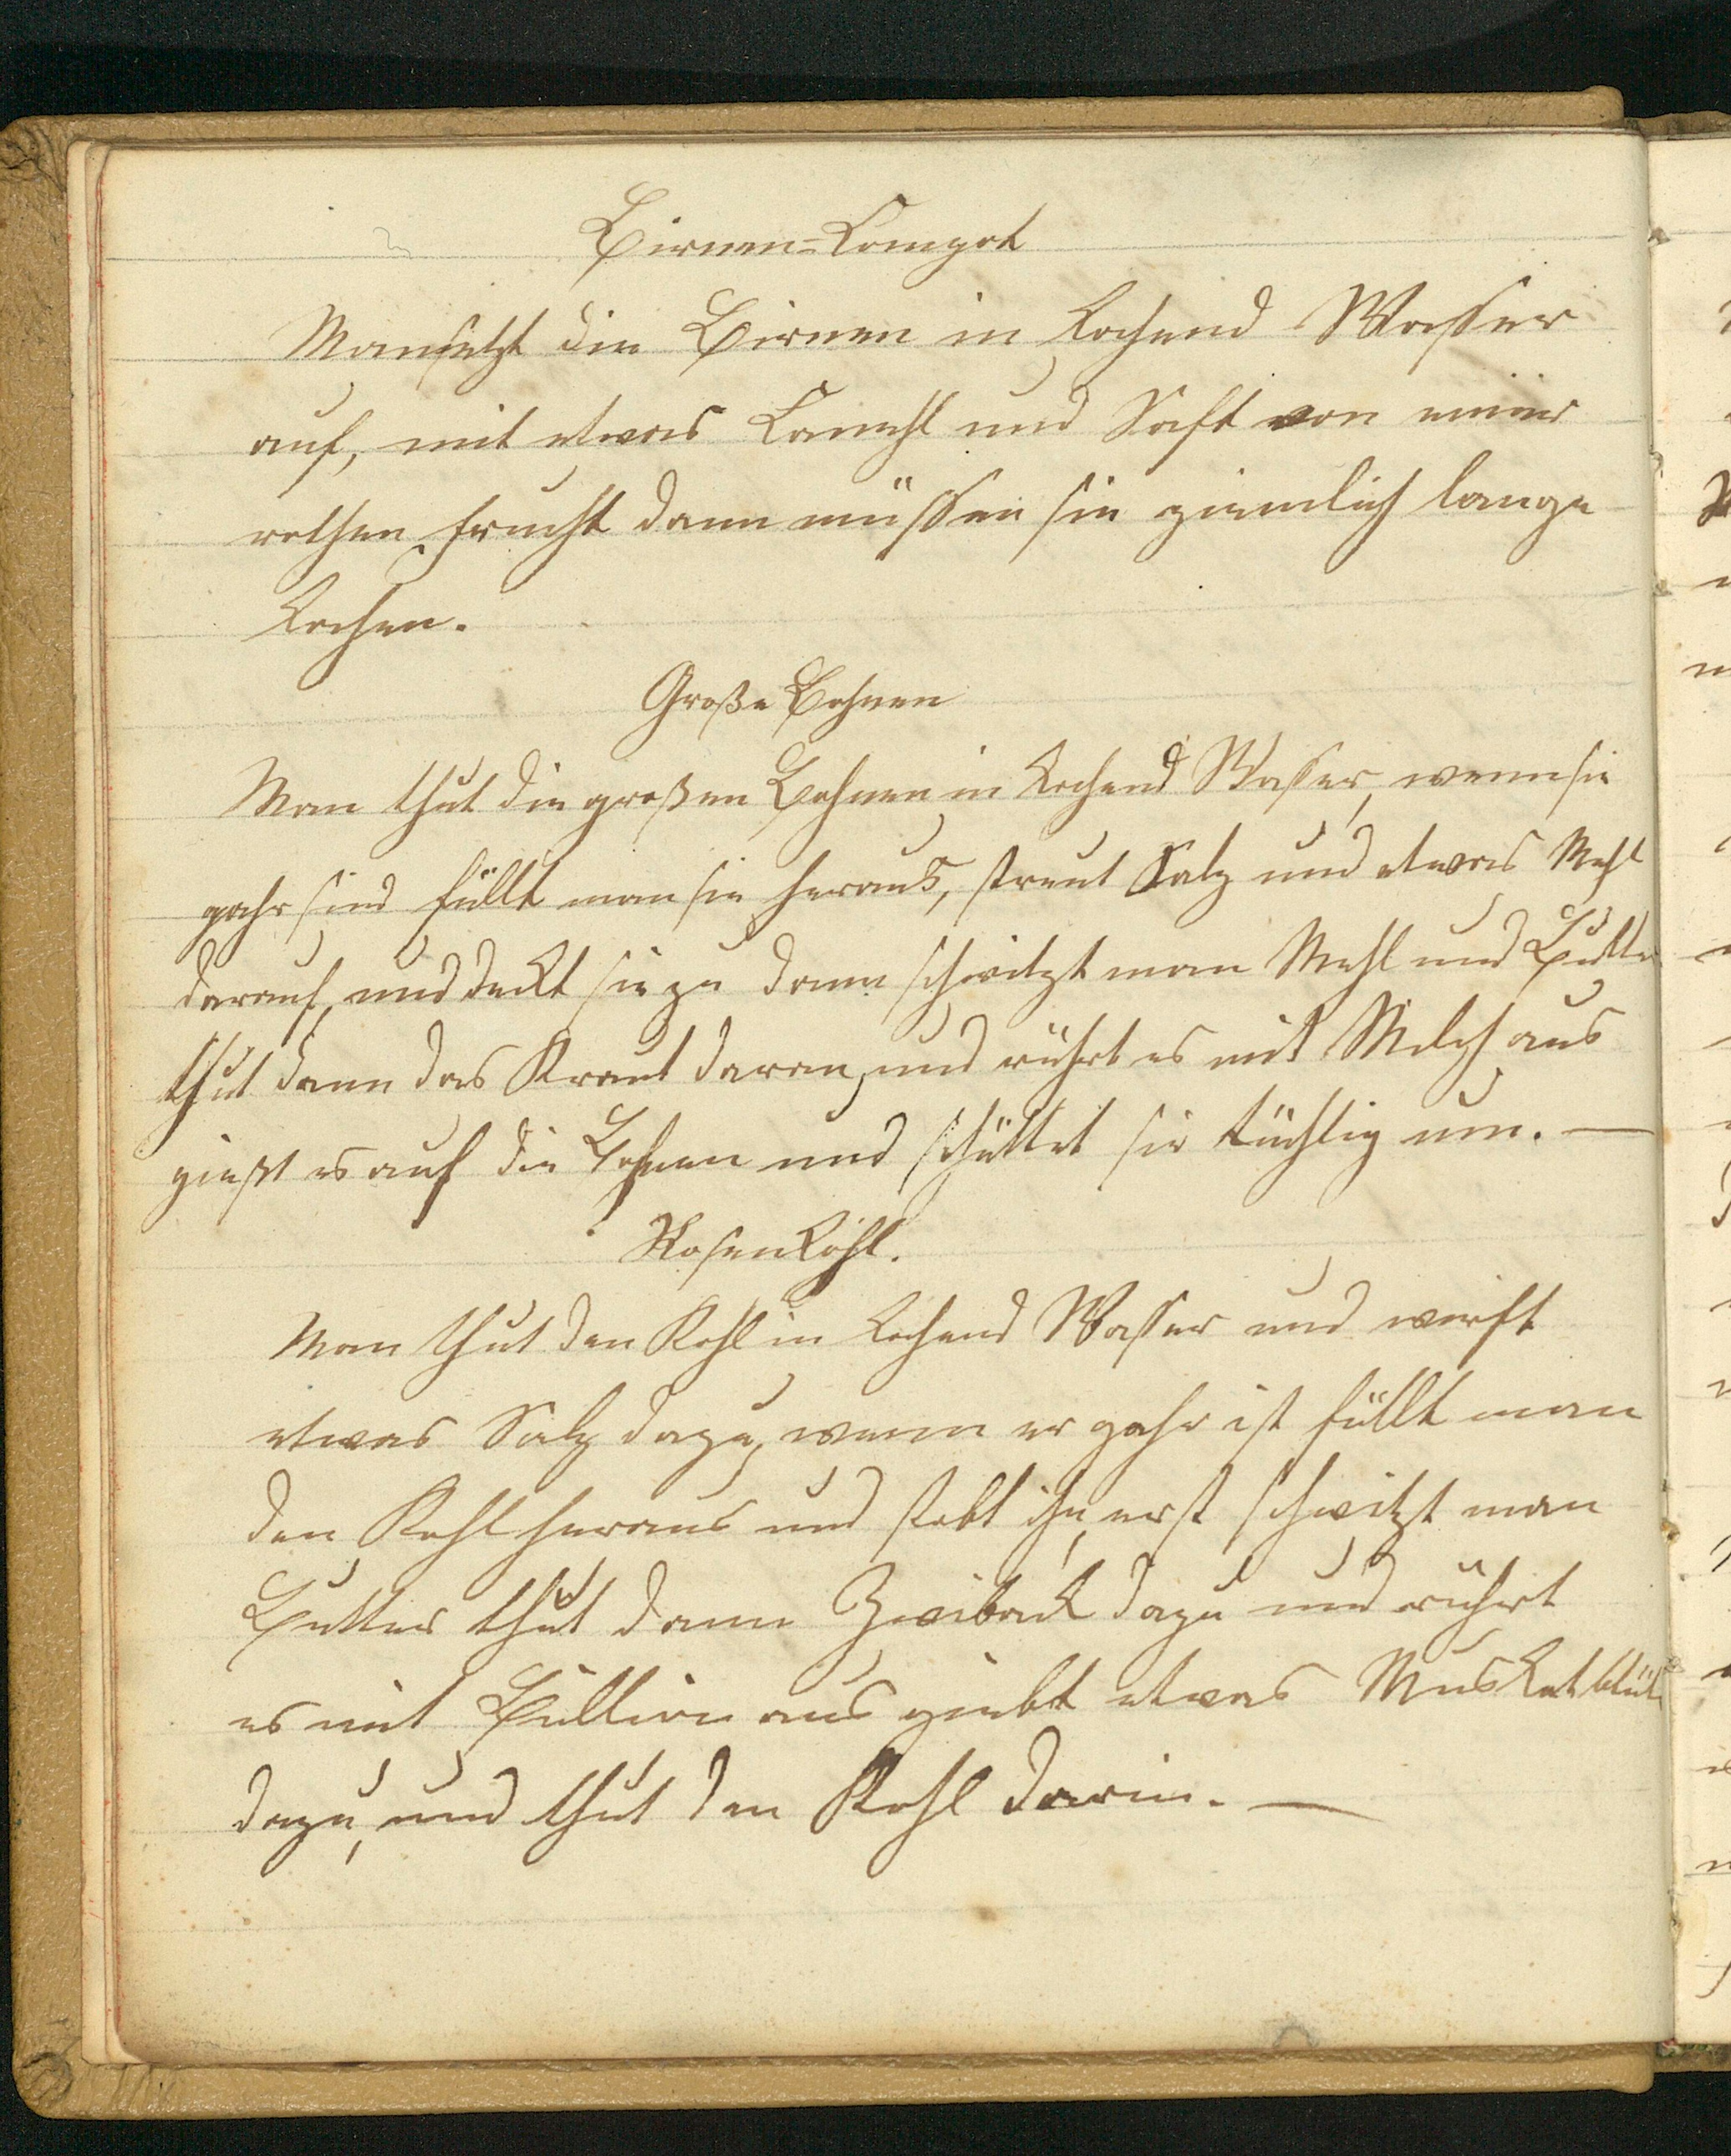 Birnen-Compot
Man setzt die Birnen in kochend Wasser
auf, mit etwas Canehl und Saft von einer
rothen Frucht dann müssen sie ziemlich lange
kochen.
Große Bohnen
Man thut die großen Bohnen in kochend Wasser, wenn sie
gahr sind füllt man sie heraus, streut Salz und etwas Mehl
darauf, und deckt sie zu dann schwitzt man Mehl und Butter
thut dann das Kraut daran, und rührt es mit Milch aus
gießt es auf die Bohnen und schüttet sie tüchtig um. —
Rosenkohl.
Man thut den Kohl in kochend Wasser und wirft
etwas Salz dazu, wenn er gahr ist füllt man
den Kohl heraus und stobt ihn, erst schwitzt man
Butter thut dann Zwiback dazu und rührt
es mit Bullion aus giebt etwas Muskatblüt
dazu, und thut den Kohl darin. —